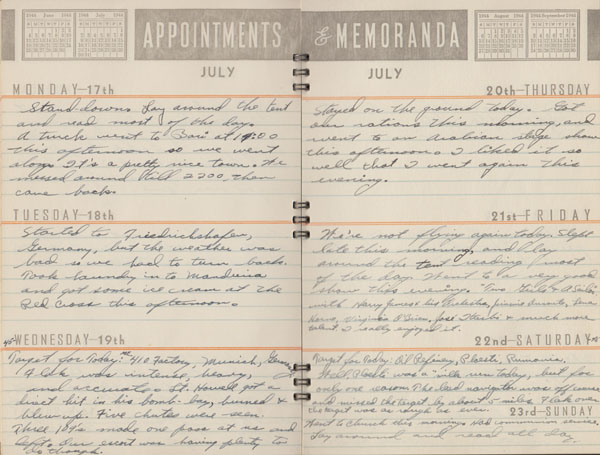 1944 June 1944
1944 July 1944
APPOINTMENTS
JULY
MONDAY—17th
Stand down. Lay around the tent
and read most of the day.
A truck went to Bari at 1400
this afternoon so we went
along. It's a pretty nice town. We
messed around till 2200, then
came back.
TUESDAY—18th
Started to Friedrichshafen,
Germany, but the weather was
bad so we had to turn back.
Took laundry in to Manduria
and got some ice cream at the
Red Cross this afternoon.
WEDNESDAY—19th
Target for Today: Factory, Munich, Germany
Flak was intense, heavy,
and accurate. Lt. got a
direct hit in his bomb-bay, burned &
blew up. Five chutes were seen.
Three 109's made one pass at us and
left. Our escort was having plenty to
do though.
& MEMORANDA
1944 August 1944
1944 September 1944
JULY
20th—THURSDAY
Stayed on the ground today. Got
our rations this morning, and
went to an Arabian stage show
this afternoon. I liked it so
well that I went again this
evening.
21st—FRIDAY
We're not flying again today. Slept
late this morning, and lay
around the tent reading most
of the day. Went to a very good
show this evening. "Two Girls & A Sailor"
with Harry James & his Orchestra, Jimmie Durante, Lena
Horne, Virginia O'Brien, José Iturbi & much more
talent. I really enjoyed it.
22nd—SATURDAY
Target for Today: Oil Refinery, Ploesti, Rumania.
Ploesti was a milk run today, but for
only one reason. The lead navigator was off course
and missed the target by about 5 miles. Flak over
the target was as rough as ever.
23rd—SUNDAY
Went to Church this morning. Had communion service.
Lay around and read all day.